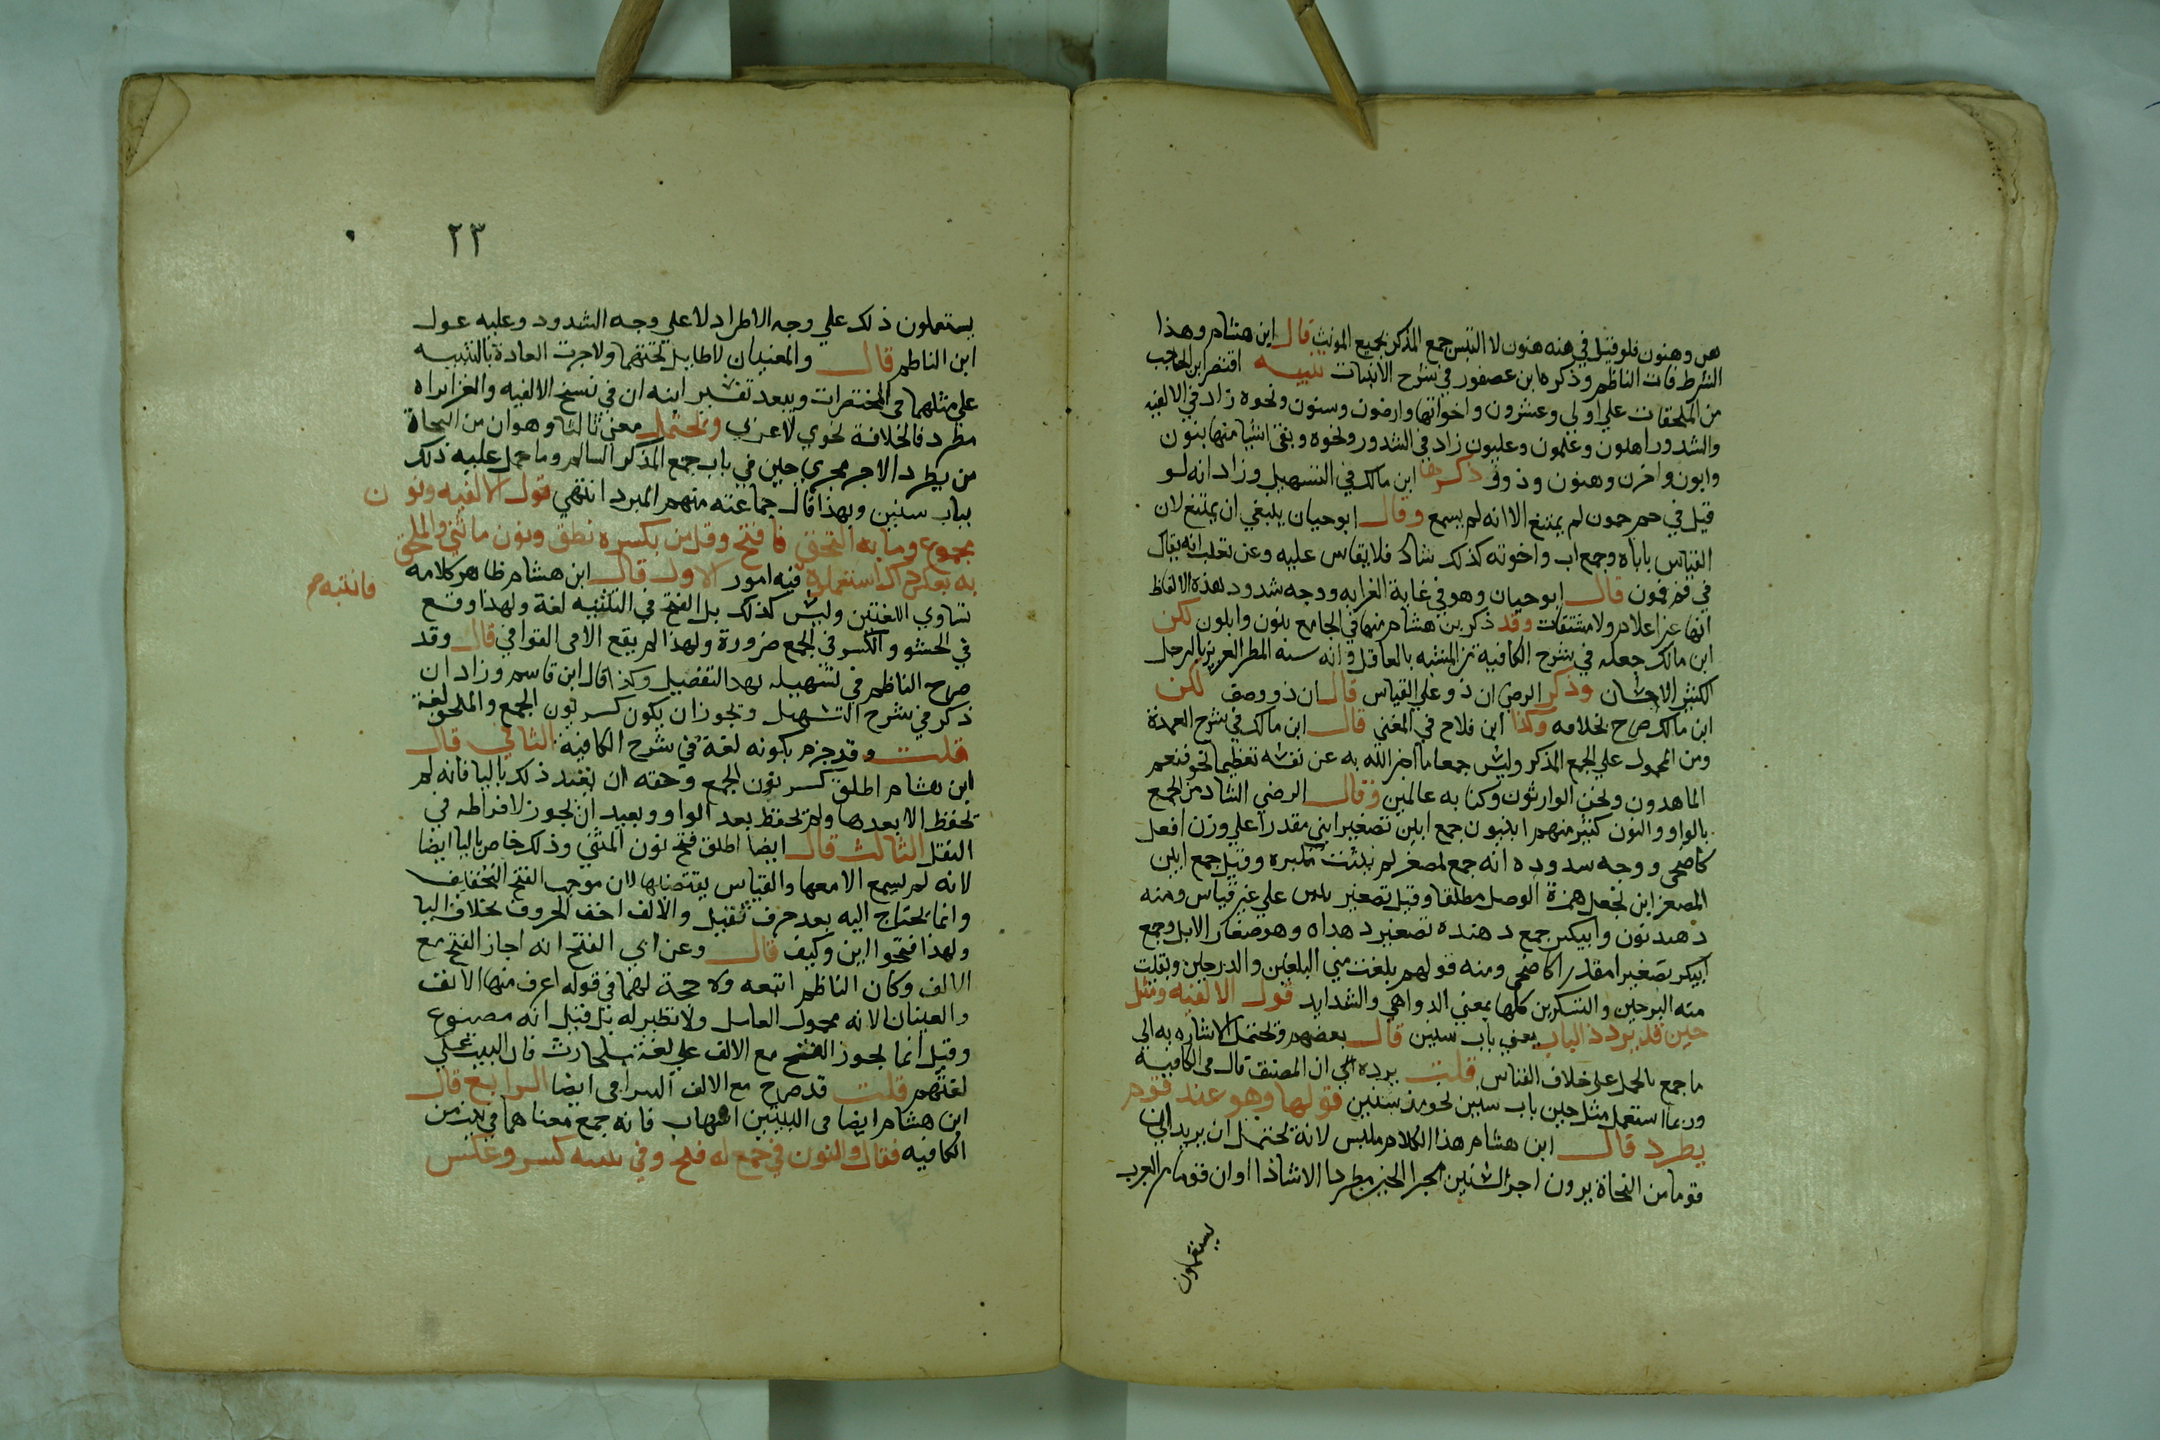 هن وهنون فلو قيل في هنه هنون لا التبس جمع المذكر بجمع المونث قال ابن هشام وهذا
الشرط فات الناظم وذكره ابن عصفور في شرح الابيات تنبيه اقتصر ابن الحاجب
من الملحقات علي اولي وعشرون واخواتها وارضون وسنون ونحوه زاد في الالفيه
والشدور اهلون وعلمون وعليون زاد في الشدور ونحوه وبقي اشيا منها بنون
وابون واخون وهنون وذوو ذكرها ابن مالك في التسهيل وزاد انه لو
قيل في حم حمون لم يمتنع الا انه لم يسمع وقال ابو حيان ينبغي ان يمتنع لان
القياس باباه وجمع اب واخوته كذلك شاد فلا يقاس عليه وعن ثعلب انه يقال
في فم فمون قال ابو حيان وهو في غاية الغرابه ووجه شدود هذه الالفاظ
انها غير اعلام ولا مشتقات وقد ذكر بن هشام منها في الجامع بنون وابلون لكن
ابن مالك جعله في شرح الكافية من المشبه بالعاقل وانه سبه المطر الغزير بالرجل
الكثير الاحسان وذكر الرضي ان ذو علي القياس قال لان ذو وصف لكن
ابن مالك صرح بخلافه وكذا ابن فلاح في المغني قال ابن مالك في شرح العمدة
ومن المحمول علي الجمع المذكر وليس جمعا ما اخبر الله به عن نفسه تعظيما نحو فنعم
الماهدون ونحن الوارثون وكنا به عالمين وقال الرضي الشاد من الجمع
بالواو والنون كثير منهم ابينون جمع ابين تصغير ابني مقدرا علي وزن افعل
كاضحي ووجه سدوده انه جمع لمصغر لم يثبت مكبره وقيل جمع ابين
المصغر ابن بجعل همزة الوصل مطلقا وقيل تصغير علي غير قياس ومنه
دهيدهون وابيكر جمع دهيده تصغير دهداه وهو صغار الابل وجمع
ابيكر تصغيرا مقدرا كاضحي ومنه قولهم بلغت مني البلغين والدرحين وبقلت
منه البرحين والفتكرين كلها بمعني الدواهي والشدايد قول الالفيه ومثل
حين قد يرد ذ الباب يعني باب سنين قال بعضهم وتحتمل الاشاره به الي
ما جمع بالحمل علي خلاف القياس قلت يرده ان المصنف قال في الكافيه
وربما استعمل مثل حين باب سنين نحو مذ سنين قولها وهو عند قوم
يطرد قال ابن هشام هذا الكلام ملبس لانه يحتمل ان يريد ان
قوما من النحاة يرون اجرا السنين مجرا الحين مطردا لا شاذا او ان قوما من العرب
يستعملون
٢٣
يستعملون ذلك علي وجه الاطراد لا علي وجه الشدود وعليه عول
ابن الناظم قال والمعنيان لا طايل تحتهما ولا جرت العادة بالتنبيه
علي مثلهما في المختصرات ويبعد تفسير ابنه ان في نسخ الالفيه والفرا يراه
مطرد فالخلاف نحوي لا عربي ويحتمل معني ثالثا وهو ان من النحاة
من يطرد الاجر مجري حين في باب جمع المذكر السالم وما حمل عليه ذلك
بباب سنين وبهذا قال جماعته منهم المبرد انتهي قول الالفيه ونون
مجموع وما به التحق فافتح وقل من بكسره نطق ونون ما ثني والملحق
به بعكس ذاك استعملوه فيه امور الاول قال ابن هشام ظاهر كلامه
فانتبه
تساوي اللغتين وليس كذلك بل الفتح في التثنيه لغة ولهذا وقع
في الحشو والكسر في الجمع ضرورة ولهذا لم يقع الا في القوافي قال وقد
صرح الناظم في تسهيله بهذا التفصيل وكذا قال ابن قاسم وزاد ان
ذكر في شرح التسهيل وتجوز ان يكون كسر نون الجمع والملحق لغة
قلت وقد جزم بكونه لغة في شرح الكافية الثاني قال
ابن هشام اطلق كسر نون الجمع وحقه ان يقيد ذلك باليا فانه لم
تحفظ الا بعدها ولم تحفظ بعد الواو وبعيد ان تجوز لافراطه في
الثقل الثالث قال ايضا اطلق فتح نون المثني وذلك خاص باليا ايضا
لانه لم يسمع الا معها والقياس يقتضيه لان موجب الفتح التخفيف
وانما يحتاج اليه بعد حرف ثقيل والالف اخف الحروف بخلاف اليا
ولهذا فتحوا اين وكيف قال وعن ابي الفتح انه اجاز الفتح مع
الالف وكان الناظم اتبعه ولا حجة لهما في قوله اعرف منها الانف
والعينان لانه مجهول العامل ولا نظير له بل قيل انه مصنوع
وقيل انما يجوز الفتح مع الالف علي لغة بلحارث فان البيت علي
لغتهم قلت قد صرح مع الالف السيرافي ايضا الرابع قال
ابن هشام ايضا في البيتين اسهاب فانه جمع معناهما في بيت من
الكافيه فقال والنون في جمع له فتح وفي تثنيه كسر وعكس